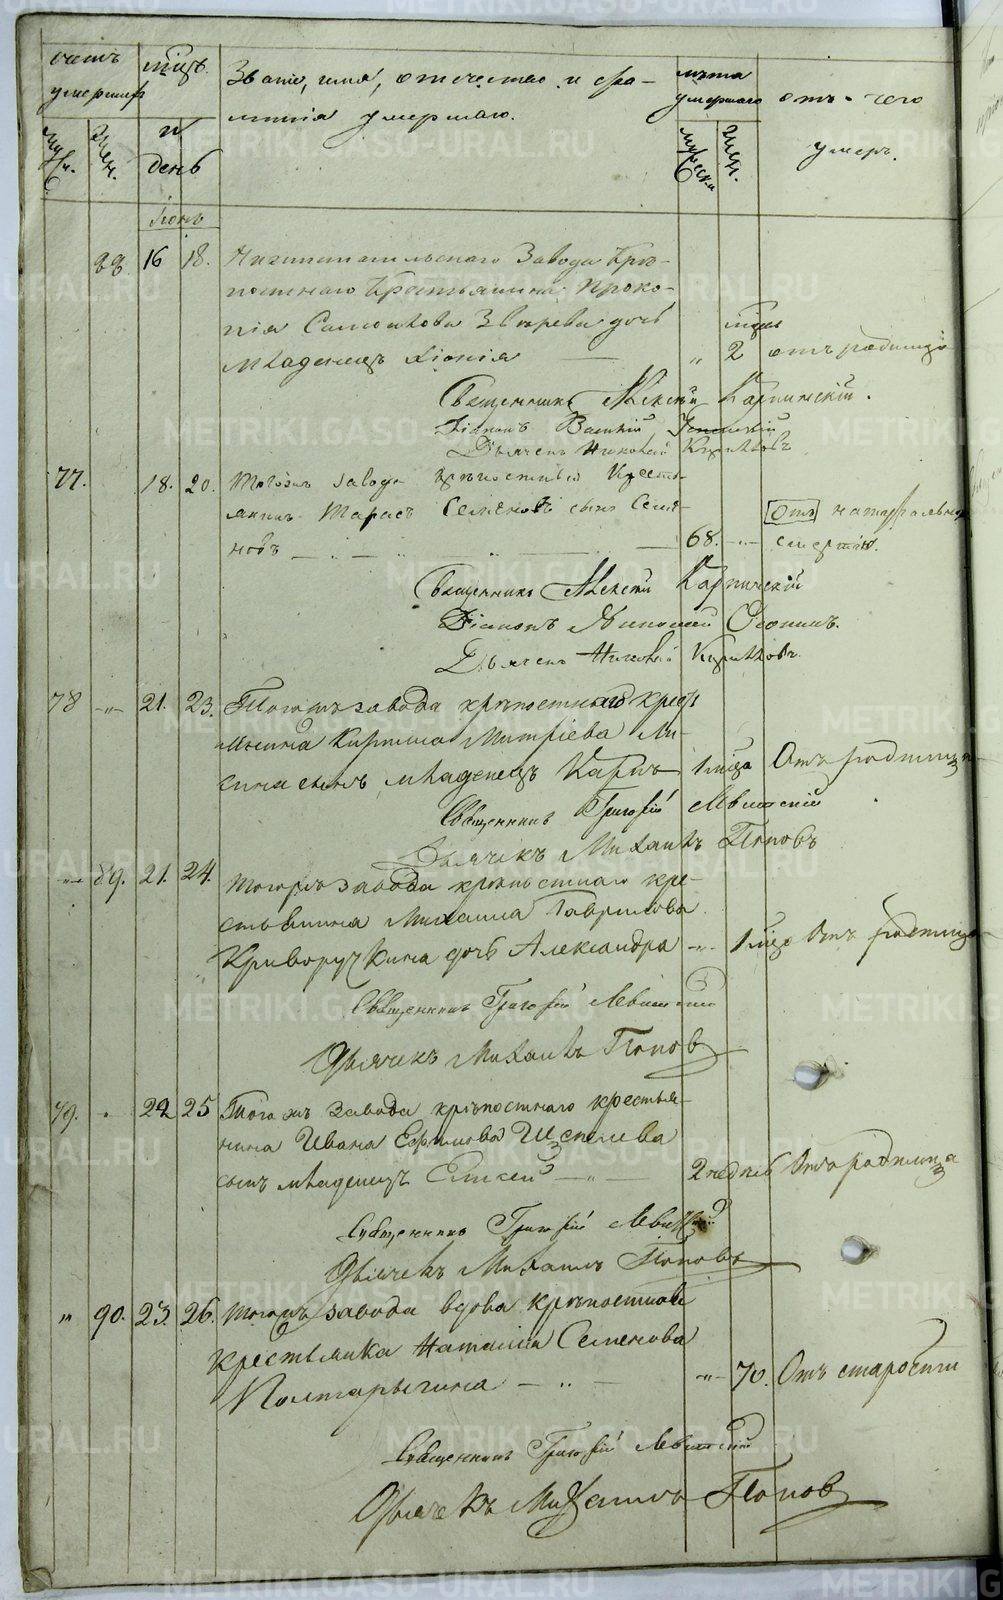 счетъ умершихъ
муж.
жен.
мѣсяцъ
и
день
Званіе, имя, отечество и фа-
милія умершаго.
лѣта
умершаго
мужеска
жен.
отъ чего
умеръ.
Іюнь
88 16 18. Нижнетагильскаго Завода крѣ-
постнаго Крестьянина Проко-
пія Самойлова Звѣрева дочь мѣсяц
младенецъ Ѳіонія — „ 2 отъ родимца
Священникъ Алексій Карпинскій.
Діаконъ Василій Успенскій
Дьячекъ Николай Кирилловъ
77. 18. 20. Тогожъ завода крѣпостный кресть-
янинъ Тарасъ Семеновъ сынъ Семе-
новъ — 68. „ Отъ натуральной
смерти.
Священникъ Алексій Карпинскій
Діаконъ Николай Осонинъ.
Дьячекъ Николай Кирилловъ
78 „ 21. 23. Тогожъ завода крѣпостнаго крест
янина Кирилла Митріева Ли-
сина сынъ младенецъ Карпъ 1 мѣсца Отъ родимца
Священникъ Григорій Левитскій
Дьячекъ Михаилъ Поповъ
„ 89. 21. 24. Тогожъ завода крѣпостнаго кре-
стьянина Михаила Гаврилова
Криворучкина дочь Александра „ 1 мѣсц Отъ родимца
Священникъ Григорій Левитскій
Дьячекъ Михаилъ Поповъ
79. „ 22 25 Тогожъ завода крѣпостнаго крестья-
нина Ивана Ефимова Щепелева
сынъ младенецъ Елисей — „ — 2 недѣль Отъ родимца
Священникъ Григорій Левитскій
Дьячекъ Михаилъ Поповъ
„ 90. 23. 26. Тогожъ завода вдова крѣпостная
крестьянка Наталия Семенова
Полтарыгина — „ — „ 70. Отъ старости
Священникъ Григорій Левитскій
Дьячекъ Михаилъ Поповъ
METRIKI.GASO-URAL.RU